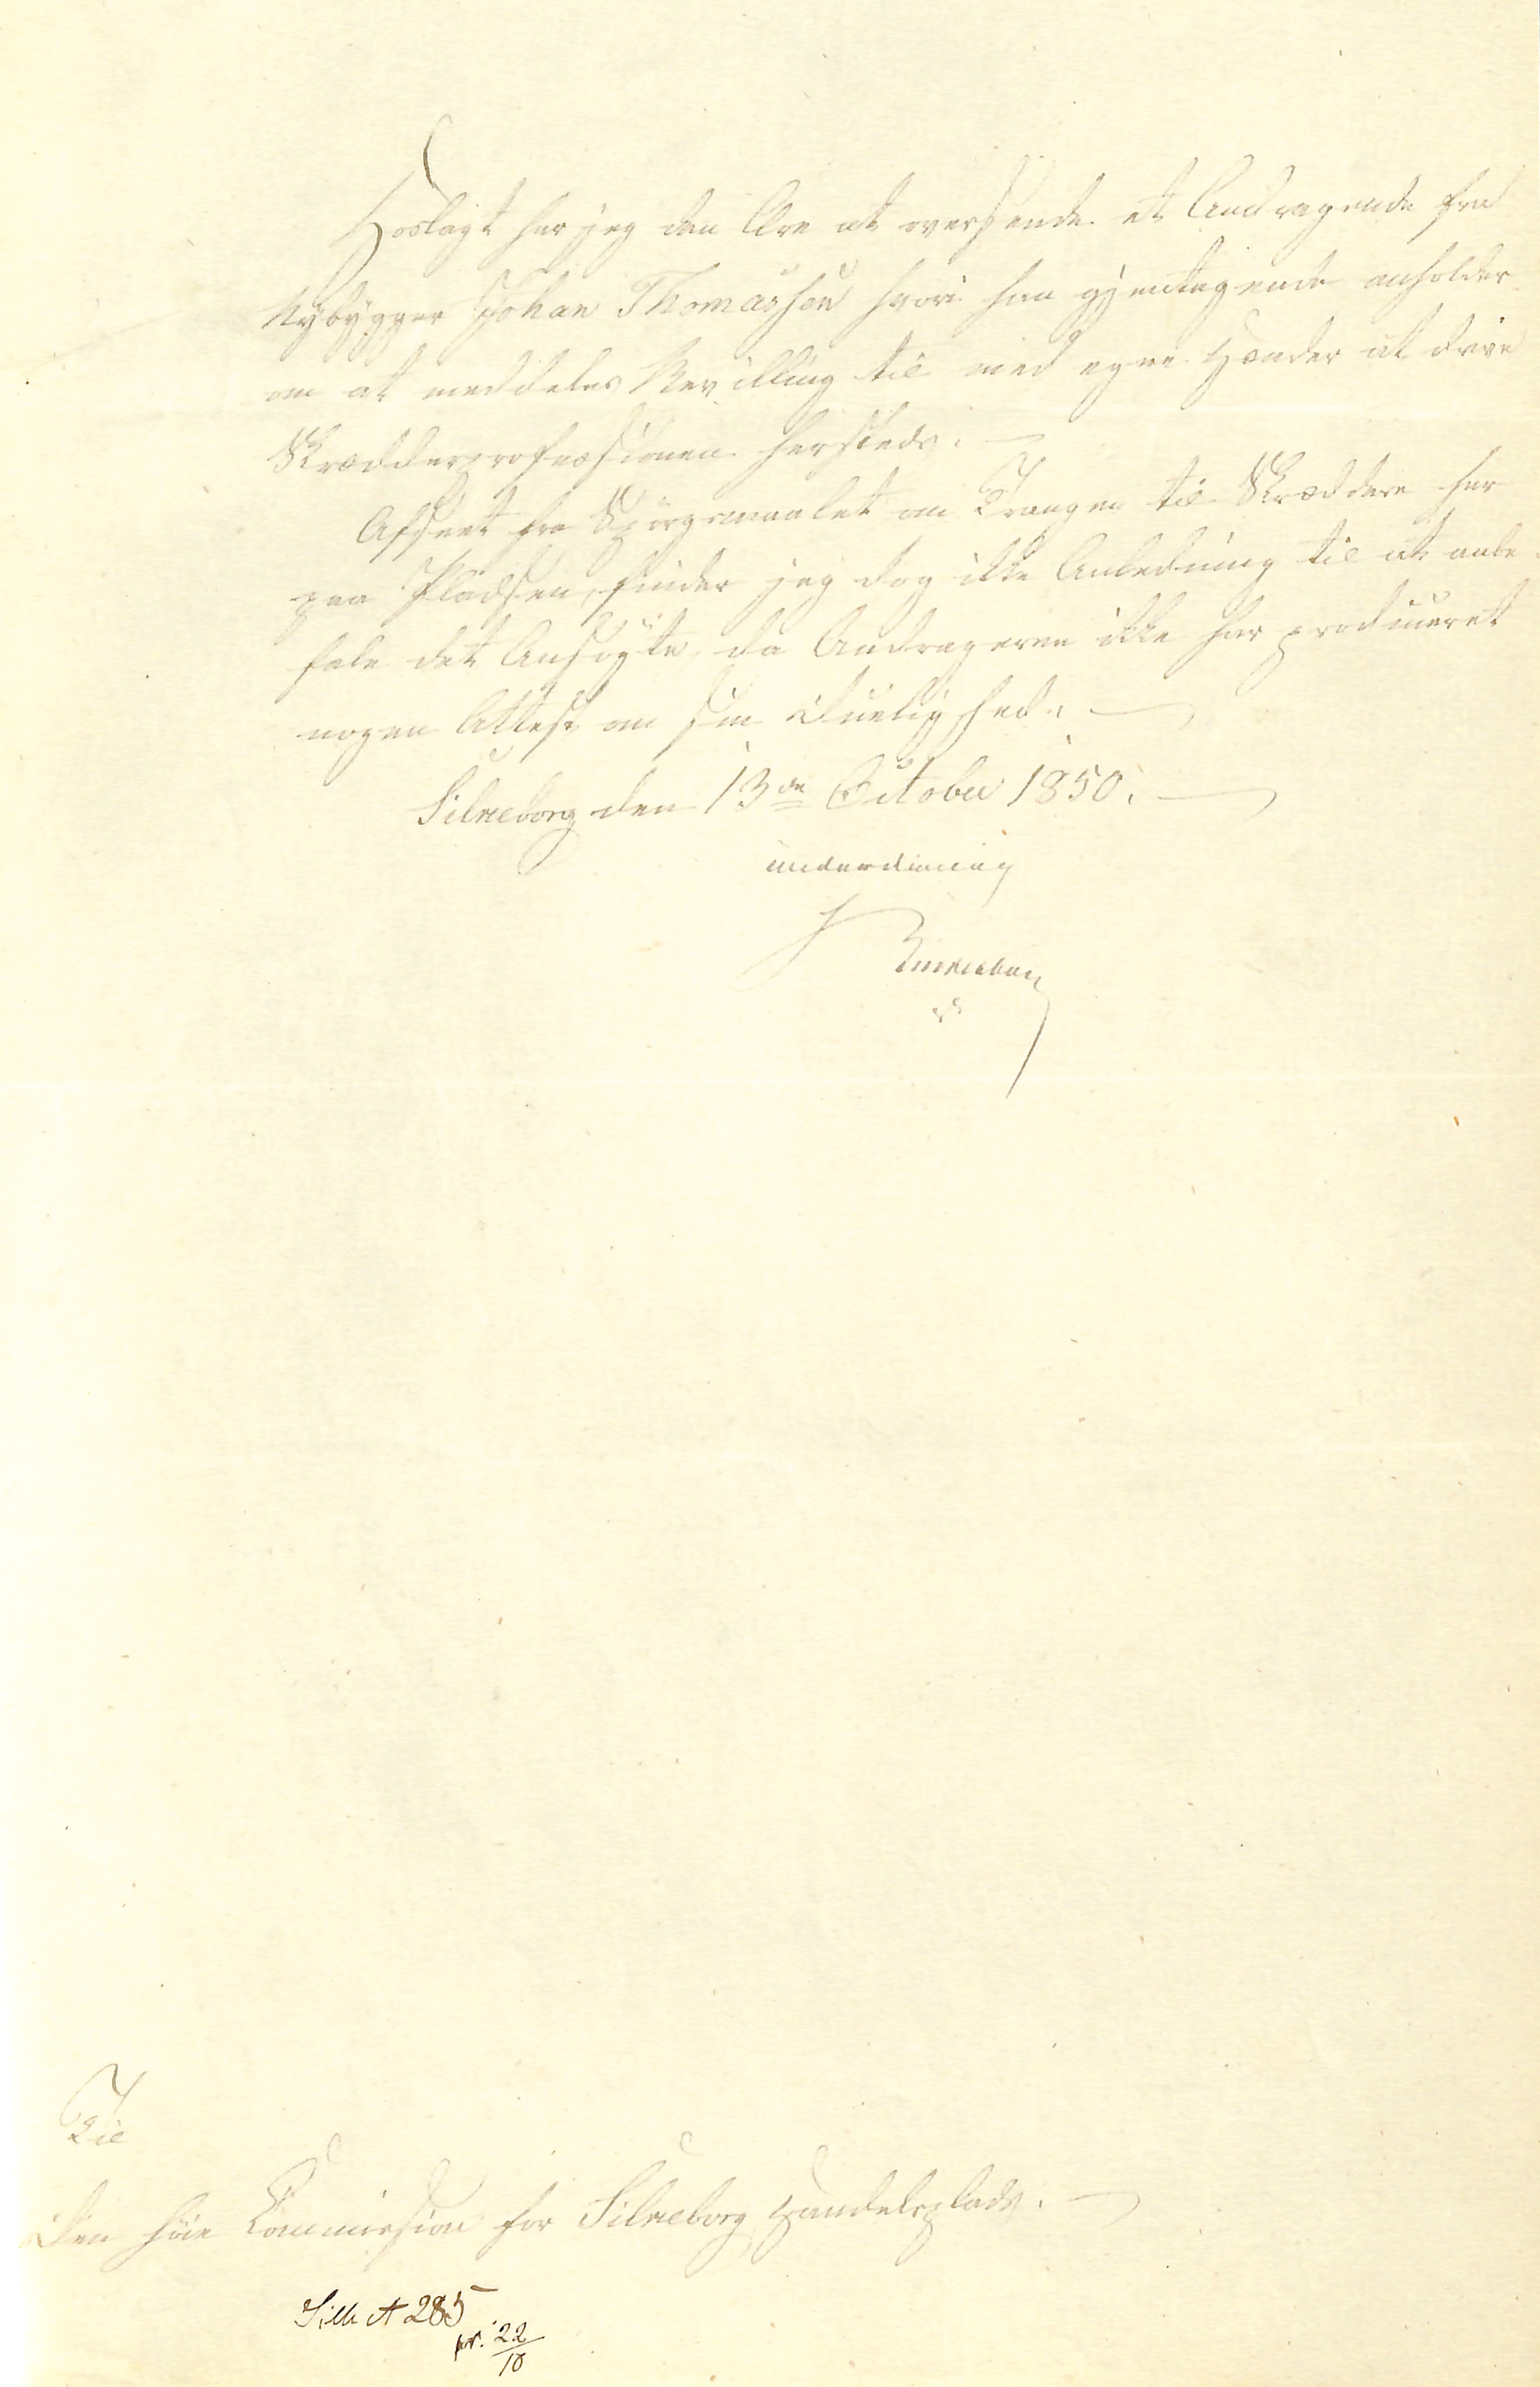 Hoslagt har jeg den Ære at oversende et Andragende fra
Nybygger Johan Thomassen hvori han gjentagende anholder
om at meddeles Bevilling til med egne Hænder at drive
Skrædderprofessionen hersteds. —
Afseet fra Spörgsmaalet om Trangen til Skræddere her
paa Pladsen, finder jeg dog ikke Anledning til at anbe-
fale det Ansögte, da Andrageren ikke har produceret
nogen Attest om sin Duelighed. —
Silkeborg den 13de October 1850. —
underdanig
Til
Den höie Commission for Silkeborg Handelsplads. —
Silk A 285
pr. 22/10